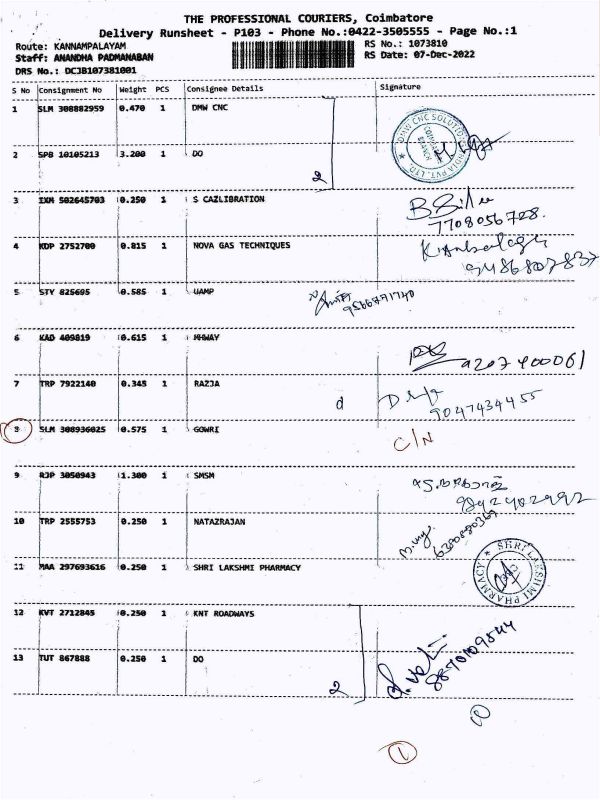 THE PROFESSIONAL COURIERS, Coimbatore
Delivery Runsheet - P103 - Phone No.:0422-3505555 - Page No.:1
Route: KANNAMPALAYAM
RS No.: 1073810
Staff: ANANDHA PADMANABAN
RS Date: 07-Dec-2022
DRS No.: DCJB107381001
S No Consignment No Weight PCS Consignee Details Signature
1 SLM 308882959 0.470 1 DMW CNC
DMW CNC SOLUTIONS INDIA PVT. LTD.
2 SPB 10105213 3.200 1 DO
2
3 IXM 502645703 0.250 1 S CAZLIBRATION
7708056728
4 KDP 2752700 0.815 1 NOVA GAS TECHNIQUES
9486807837
5 STY 825695 0.585 1 UAMP
9566791740
6 KAD 409819 0.615 1 MHWAY
9207400061
7 TRP 7922140 0.345 1 RAZJA
d
9047434455
8 SLM 308936025 0.575 1 GOWRI
C/N
9 RJP 3050943 1.300 1 SMSM
9842402992
10 TRP 2555753 0.250 1 NATAZRAJAN
11 MAA 297693616 0.250 1 SHRI LAKSHMI PHARMACY
SHRI LAKSHMI PHARMACY
12 KVT 2712845 0.250 1 KNT ROADWAYS
8870109544
13 TUT 867888 0.250 1 DO
2
1